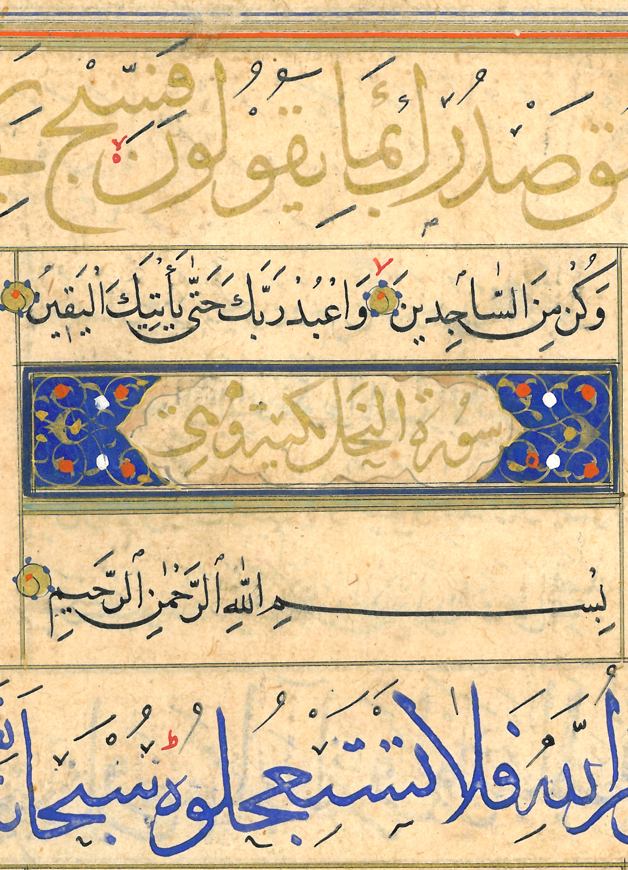 صَدْرُكَ بِمَا يَقُولُونَ فَسَبِّحْ
وَكُنْ مِنَ السَّاجِدِينَ وَاعْبُدْ رَبَّكَ حَتَّى يَأْتِيَكَ الْيَقِينُ
سُورَةُ النَّحْلِ مَكِّيَّة وَهِيَ
بِسْمِ اللَّهِ الرَّحْمٰنِ الرَّحِيمِ
اللَّهِ فَلَا تَسْتَعْجِلُوهُ سُبْحَانَهُ